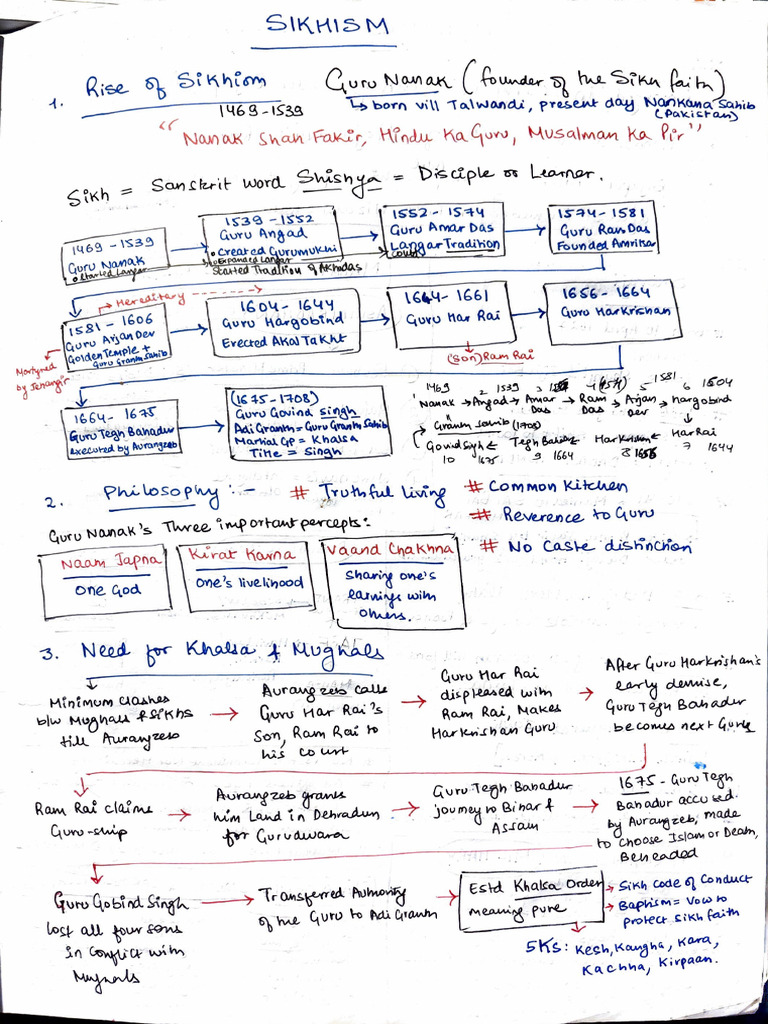 SIKHISM
1. Rise of Sikhism
Guru Nanak (founder of the Sikh faith)
1469-1539
↳ born vill Talwandi, present day Nankana Sahib (Pakistan)
"Nanak Shah Fakir, Hindu Ka Guru, Musalman Ka Pir"
Sikh = Sanskrit word Shishya = Disciple or Learner.
1469-1539
Guru Nanak
• Started Langar
1539-1552
Guru Angad
• Created Gurumukhi
• Expanded Langar
Started Tradition of Akhadas
1552-1574
Guru Amar Das
Langar Tradition
1574-1581
Guru Ram Das
Founded Amritsar
→ Hereditary
1581-1606
Guru Arjan Dev
Golden Temple +
Guru Granth Sahib
Martyred
by Jehangir
1604-1644
Guru Hargobind
Erected Akal Takht
1644-1661
Guru Har Rai
(son) Ram Rai
1656-1664
Guru Harkrishan
1664-1675
Guru Tegh Bahadur
executed by Aurangzeb
(1675-1708)
Guru Govind Singh
Adi Granth = Guru Granth Sahib
Martial Gp = Khalsa
Title = Singh
1469 2 1539 3 4 5 1581 6 1604
Nanak → Angad → Amar Das → Ram Das → Arjan Dev → Hargobind
Granth Sahib (1708)
Govid Sigh ← Tegh Bahadur ← HarKrishan ← Har Rai
10 1675 9 1664 8 1656 7 1644
2. Philosophy :-
# Truthful living
# Common Kitchen
# Reverence to Guru
# No Caste distinction
Guru Nanak's Three important percepts:
Naam Japna
One God
Kirat Karna
One's livelihood
Vaand Chakhna
Sharing one's
earnings with
others.
3. Need for Khalsa & Mughals
Minimum clashes
b/w Mughals & Sikhs
till Aurangzeb
→ Aurangzeb calls
Guru Har Rai's
Son, Ram Rai to
his court
→ Guru Har Rai
displeased with
Ram Rai, Makes
Harkrishan Guru
→ After Guru Harkrishan's
early demise,
Guru Tegh Bahadur
becomes next Guru
Ram Rai claims
Guru-ship
→ Aurangzeb grants
him Land in Dehradun
for Gurudwara
→ Guru Tegh Bahadur
journey to Bihar &
Assam
→ 1675 - Guru Tegh
Bahadur accused
by Aurangzeb, made
to choose Islam or Death,
Beheaded
Guru Gobind Singh
lost all four sons
in conflict with
Mughals
→ Transferred Authority
of the Guru to Adi Granth
→ Estd Khalsa Order
meaning pure
→ Sikh code of Conduct
→ Baptism = Vow to
protect Sikh faith
5Ks: Kesh, Kangha, Kara,
Kachha, Kirpaan.